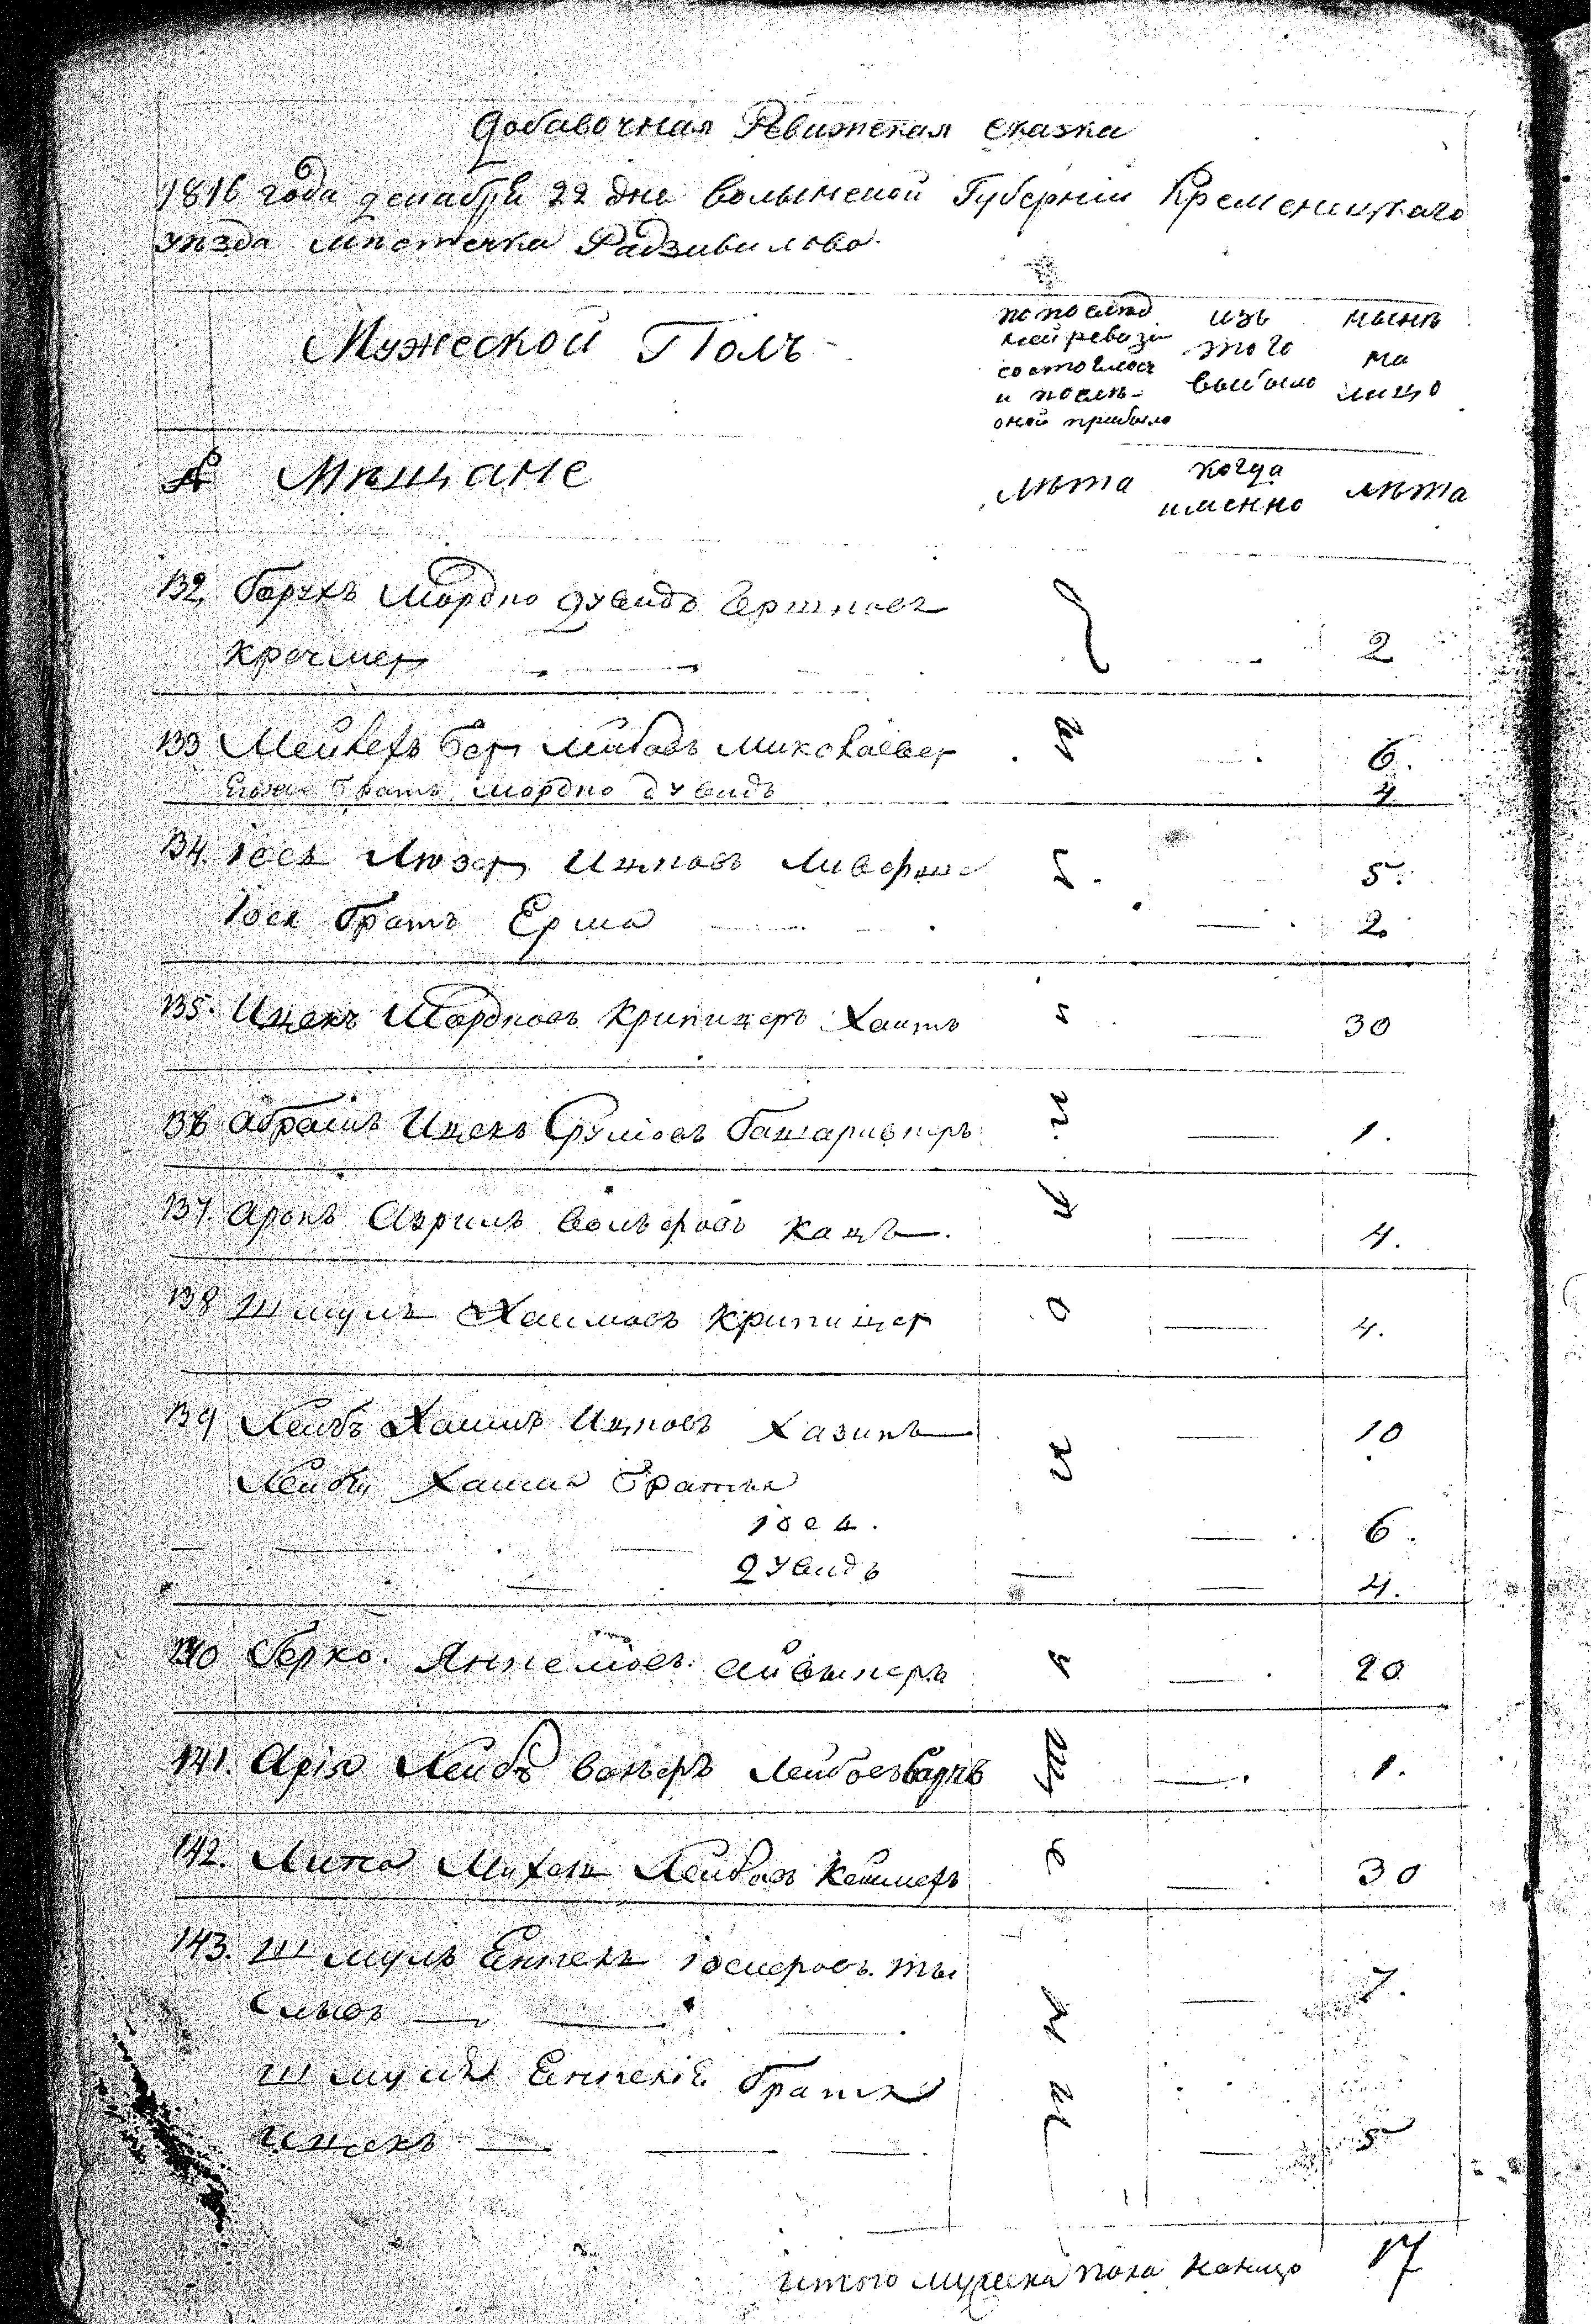 Добавочная Ревижская сказка
1816 года декабря 22 дня волынской Губерніи Кременицкаго
уѣзда мѣстечка Радзивилова.
Мужеской Полъ
по послѣд
ней ревизіи
состояло
и послѣ
оной прибыло
изъ
того
выбыло
нынѣ
на
лицо
№ Мѣщане
лѣта
когда
именно
лѣта
132 Борухъ Мордко Дувидъ Гершковъ
Крочмер 2
133 Мейлехъ Бер Лейбовъ 6.
братъ Мордко дувидъ 4
134. Іось Люзер Ицковъ 5.
Іося братъ Ерша 2.
135. Ицекъ Мордковъ Крипицеръ Хаитъ 30
136 Абрамъ Ицекъ Срулиовъ 1.
137. Аронъ Азрилъ Вольфовъ Кацъ 4.
138 Шмуль Хаимовъ Крипицер 4.
139 Лейбъ Хаимъ Ицковъ Хазинъ 10
Лейбы Хаима братья
Іось. 6.
Дувидъ 4.
140 Берко Янкелиовъ 20
141. Арія Лейбъ Лейбовъ 1.
142. Липа Михель Лейбовъ 30
143. Шмуль Енкель Іосиеровъ 7.
Шмуля Енкеля братъ
Ицекъ 5
итого мужска пола налицо 17